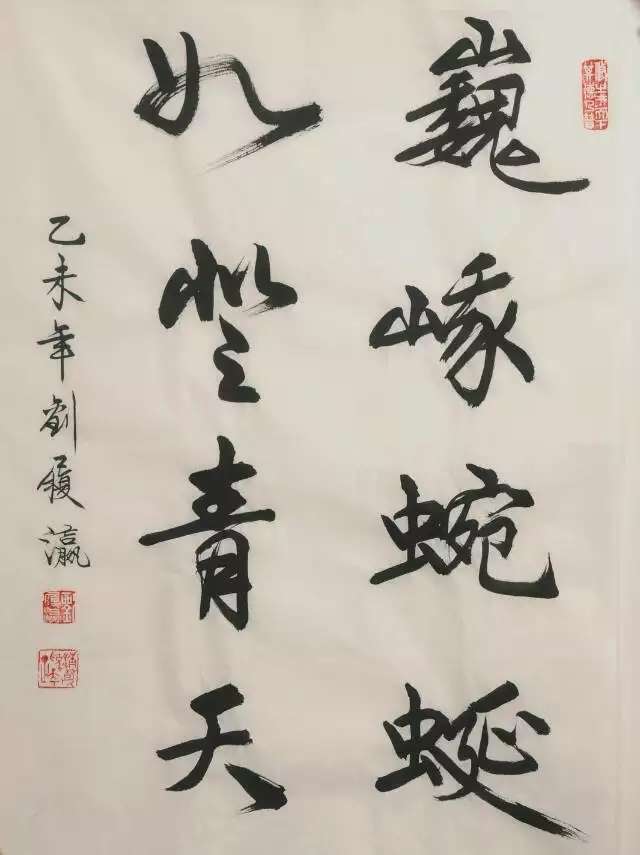 巍峨蜿蜒
如登青天
乙未年劉履瀛